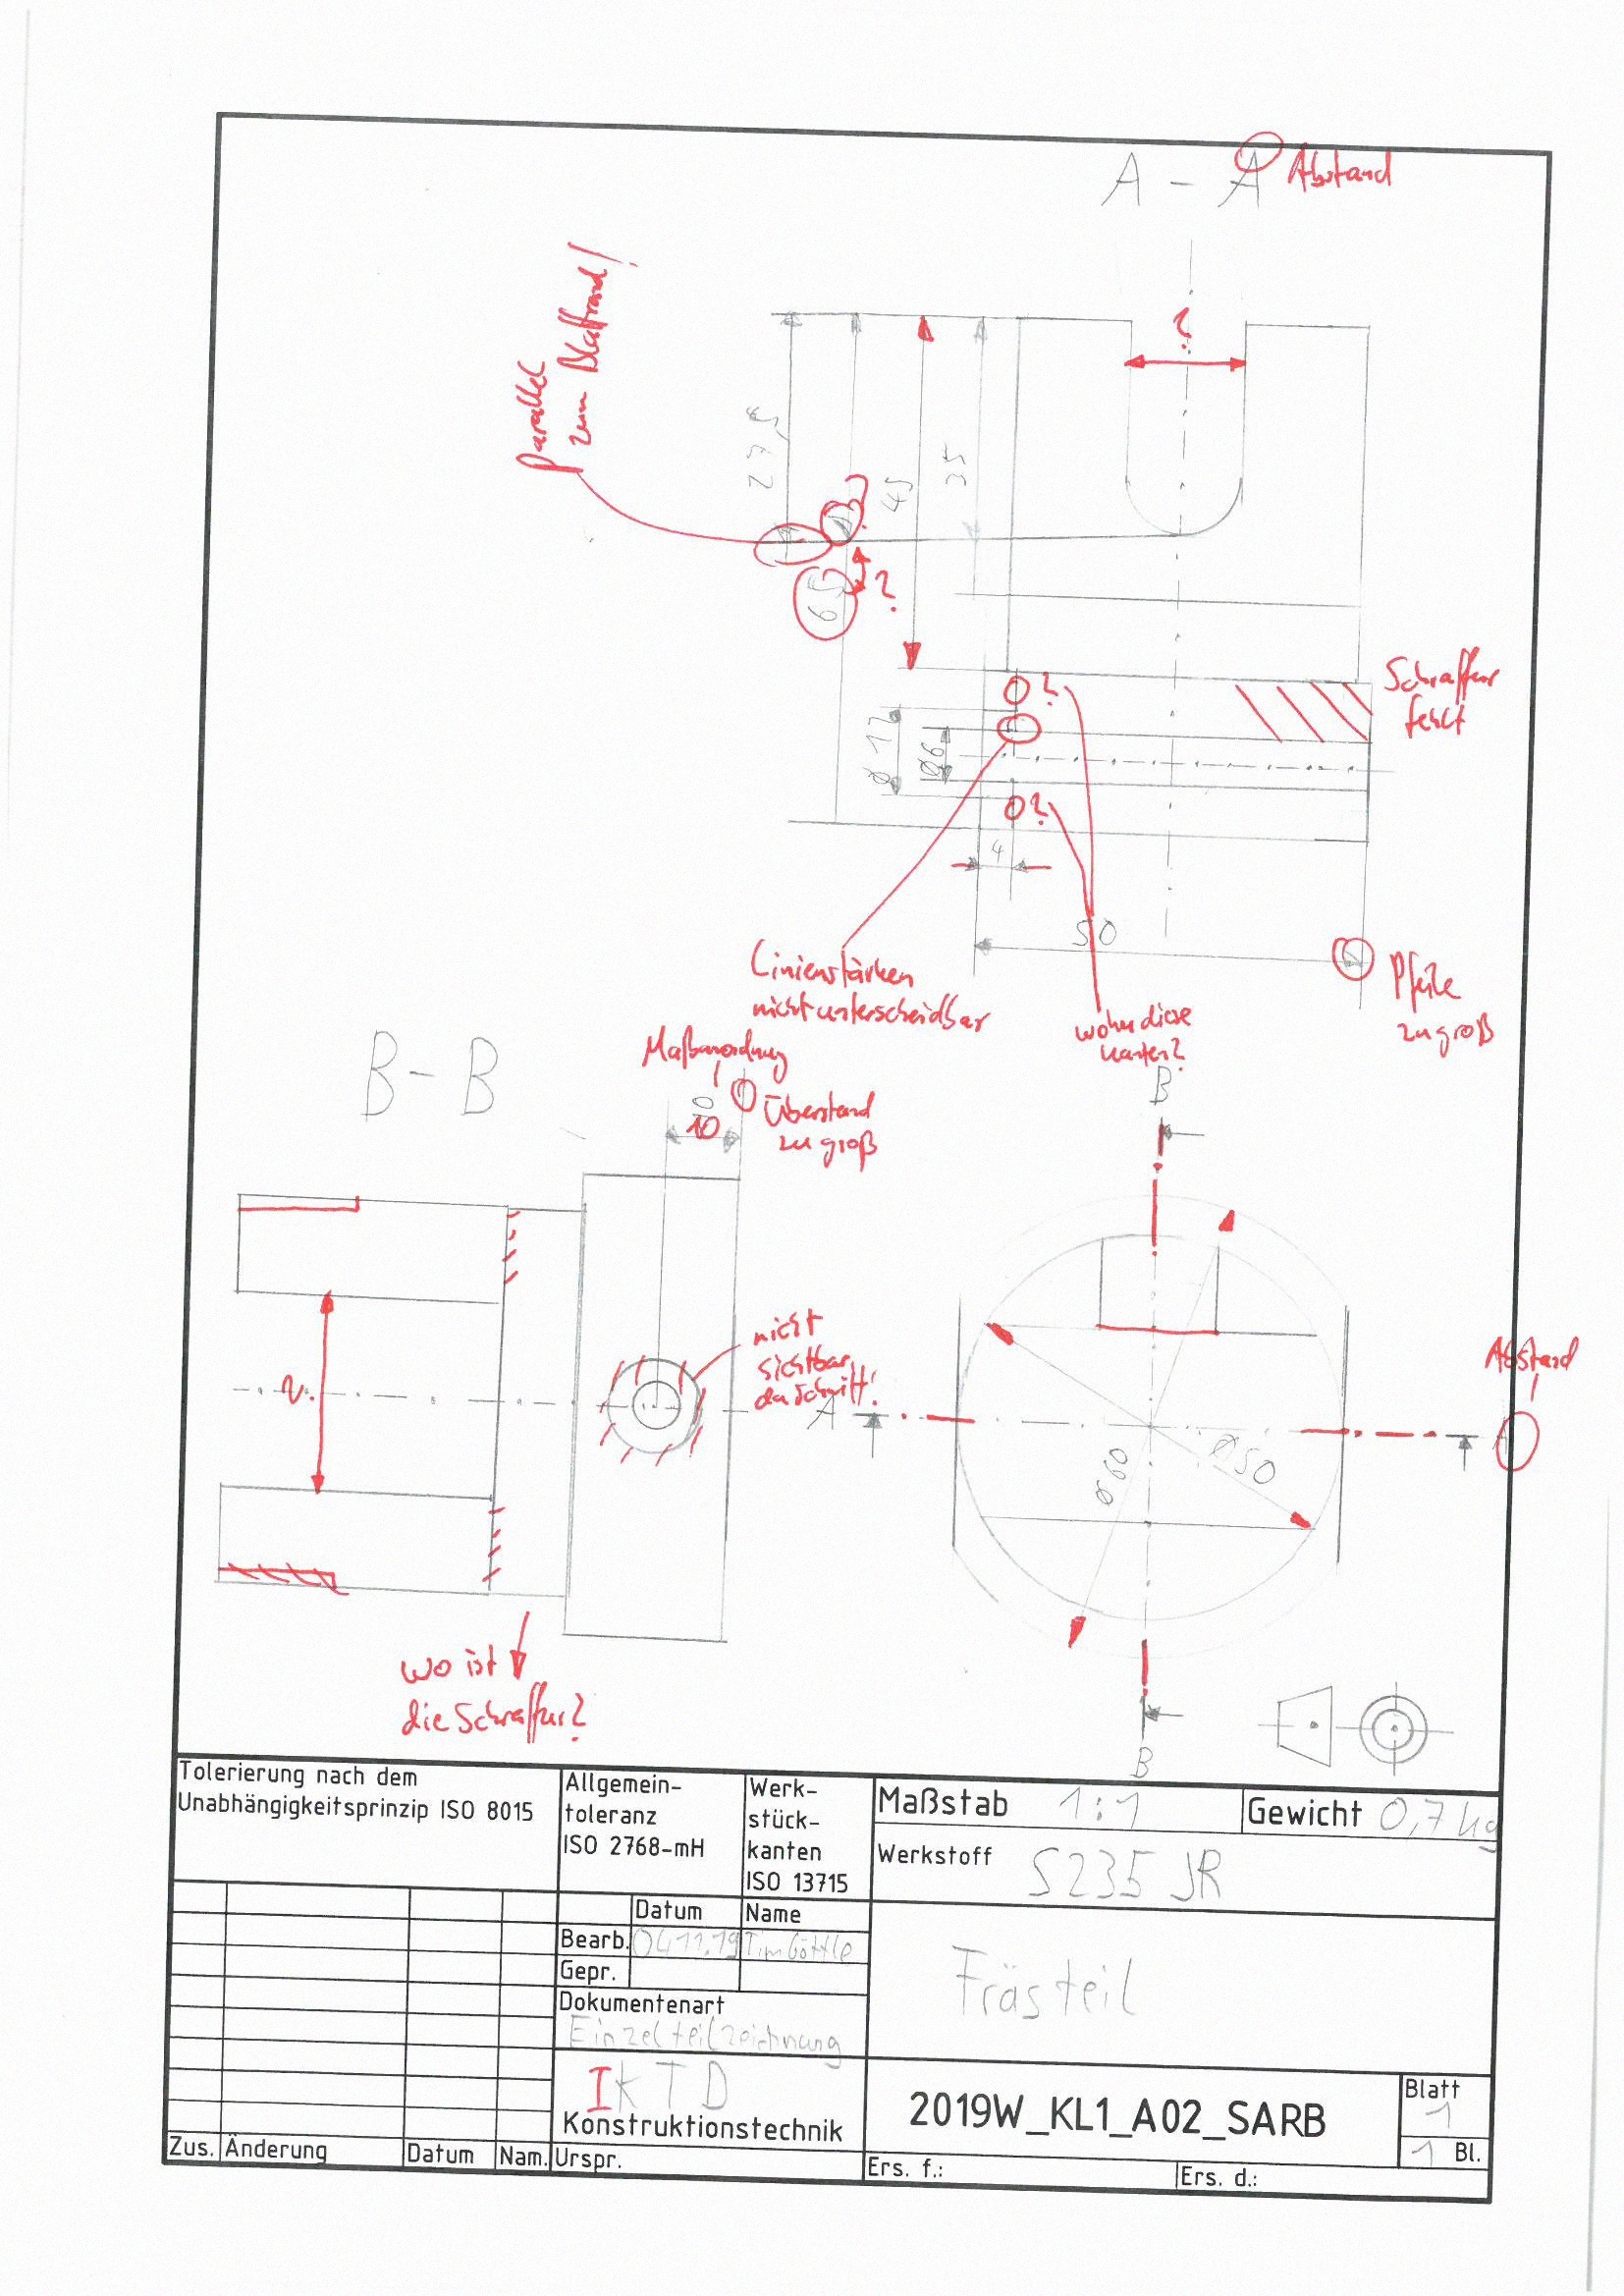 A - A
Abstand
parallel
zum Blattrand!
?
27,5
45
35
65
?
?
Schraffur
fehlt
0?
ø 12
ø6
0?
4
50
Linienstärken
nicht unterscheidbar
woher diese
Kanten?
Pfeile
zu groß
B - B
Maßanordnung
10
10
Überstand
zu groß
B
nicht
sichtbar,
da Schnitt!
?
A
Abstand
ø60
ø50
wo ist
die Schraffur?
B
Tolerierung nach dem
Unabhängigkeitsprinzip ISO 8015
Allgemein-
toleranz
ISO 2768-mH
Werk-
stück-
kanten
ISO 13715
Maßstab 1:1
Gewicht 0,7 kg
Werkstoff S235 JR
Datum Name
Bearb. 04.11.19 Tim Göttle
Gepr.
Dokumentenart
Einzelteilzeichnung
Frästeil
IKTD
Konstruktionstechnik
2019W_KL1_A02_SARB
Blatt
1
1 Bl.
Zus. Änderung Datum Nam. Urspr. Ers. f.: Ers. d.: